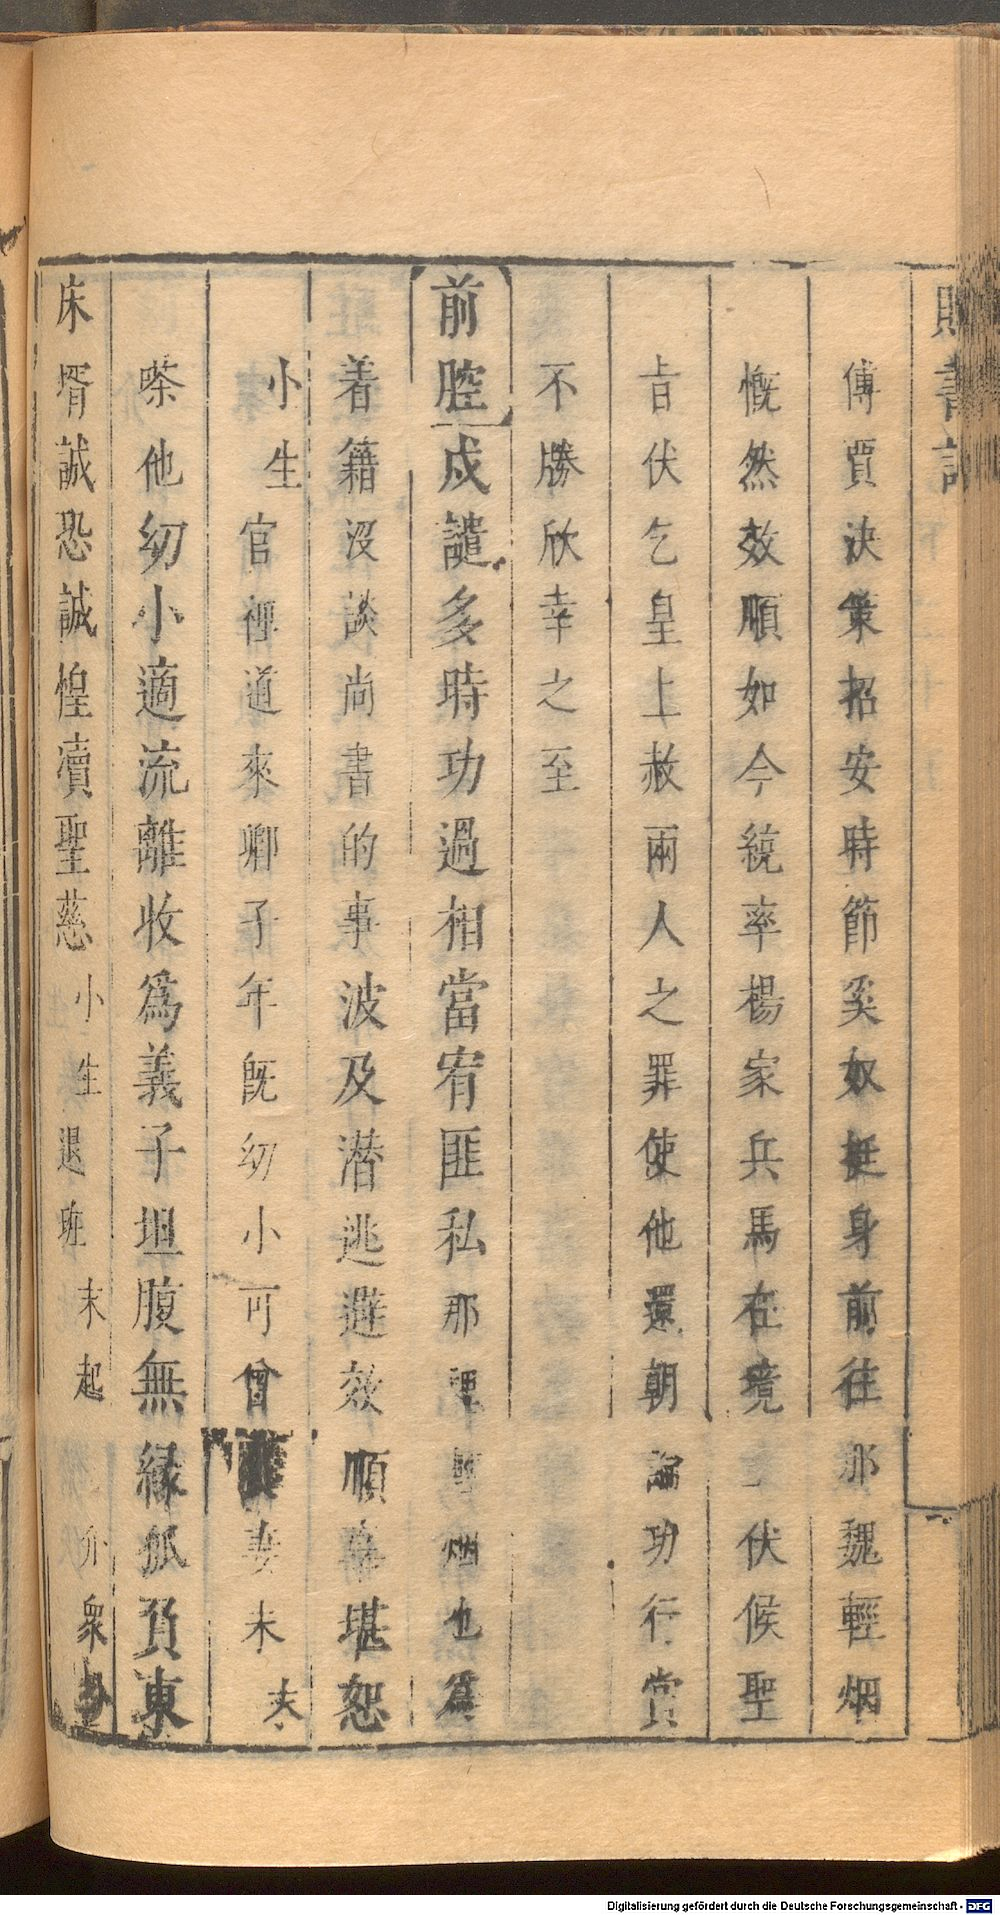 書記
傅賈決策招安時節奚奴挺身前往那魏輕烟
慨然效順如今統率楊家兵馬在境伏候聖
旨伏乞皇上赦兩人之罪使他還朝論功行賞
不勝欣幸之至
前腔戍譴多時功過相當宥匪私那裡輕烟也為
着籍沒談尚書的事波及潛逃避效順堪恕
小生官裡道來卿子年旣幼小可曾妻未夫
嗏他幼小適流離收為義子坦腹無緣孤負東
床壻誠恐誠惶瀆聖慈小生退班末起介衆
Digitalisierung gefördert durch die Deutsche Forschungsgemeinschaft - DFG